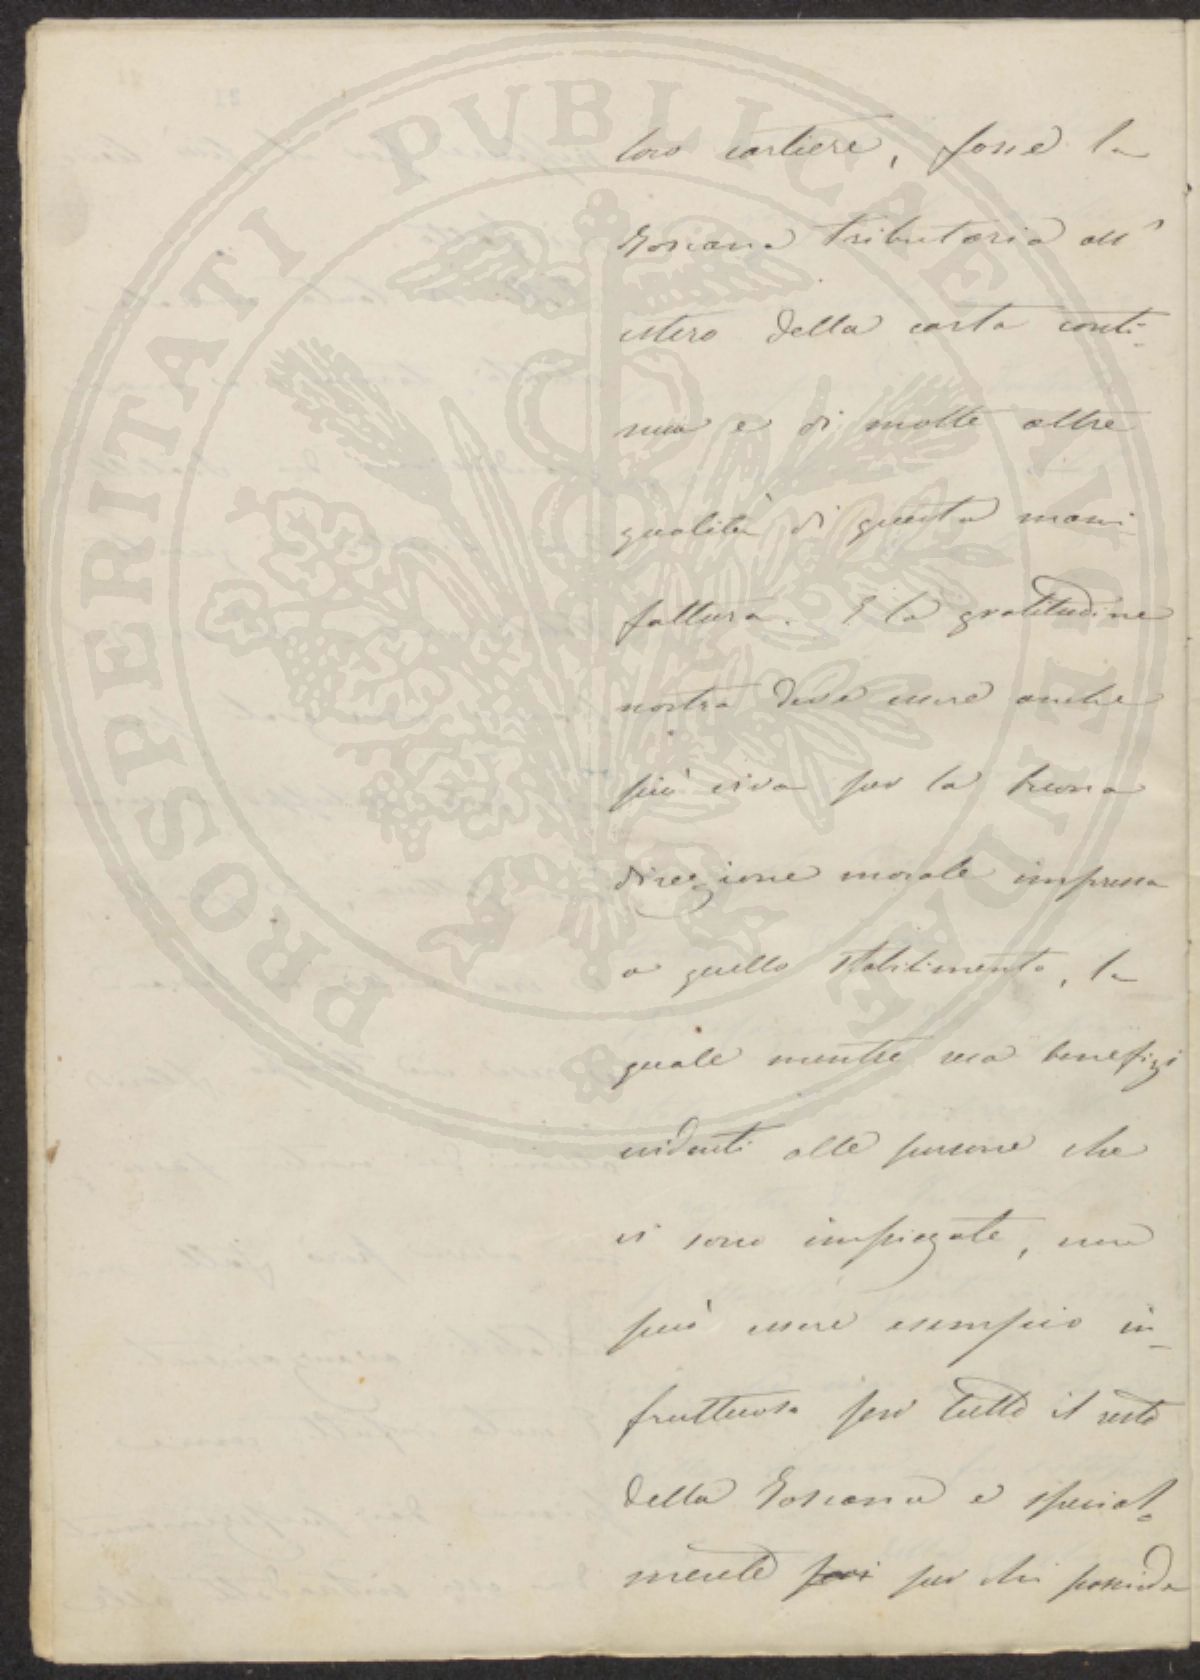 PROSPERITATI PVBLICAE AVGENDAE
loro cartiere, fosse la
Toscana tributaria all'
estero della carta conti-
nua e di molte altre
qualità di questa mani-
fattura. E la gratitudine
nostra deve essere anche
più viva per la buona
direzione morale impressa
a quello stabilimento, la
quale mentre reca benefizi
evidenti alle persone che
vi sono impiegate, non
può essere esempio in-
fruttuoso per tutto il resto
della Toscana e special-
mente poi per chi possiede